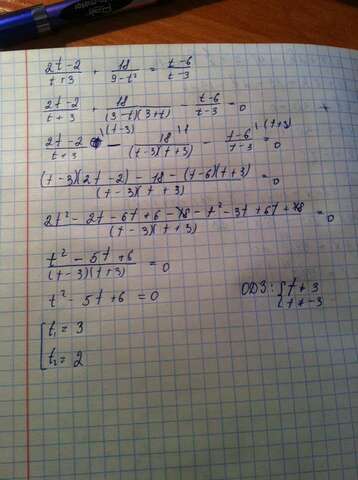 (2t-2)/(t+3) + 18/(9-t²) = (t-6)/(t-3)
(2t-2)/(t+3) + 18/((3-t)(3+t)) - (t-6)/(t-3) = 0
(2t-2)/(t+3) \(t-3) - 18/((t-3)(t+3)) \1 - (t-6)/(t-3) \(t+3) = 0
((t-3)(2t-2) - 18 - (t-6)(t+3))/((t-3)(t+3)) = 0
(2t²-2t-6t+6-18-t²-3t+6t+18)/((t-3)(t+3)) = 0
(t²-5t+6)/((t-3)(t+3)) = 0
t²-5t+6=0
ОДЗ: { t ≠ 3
t ≠ -3
[ t₁ = 3
t₂ = 2